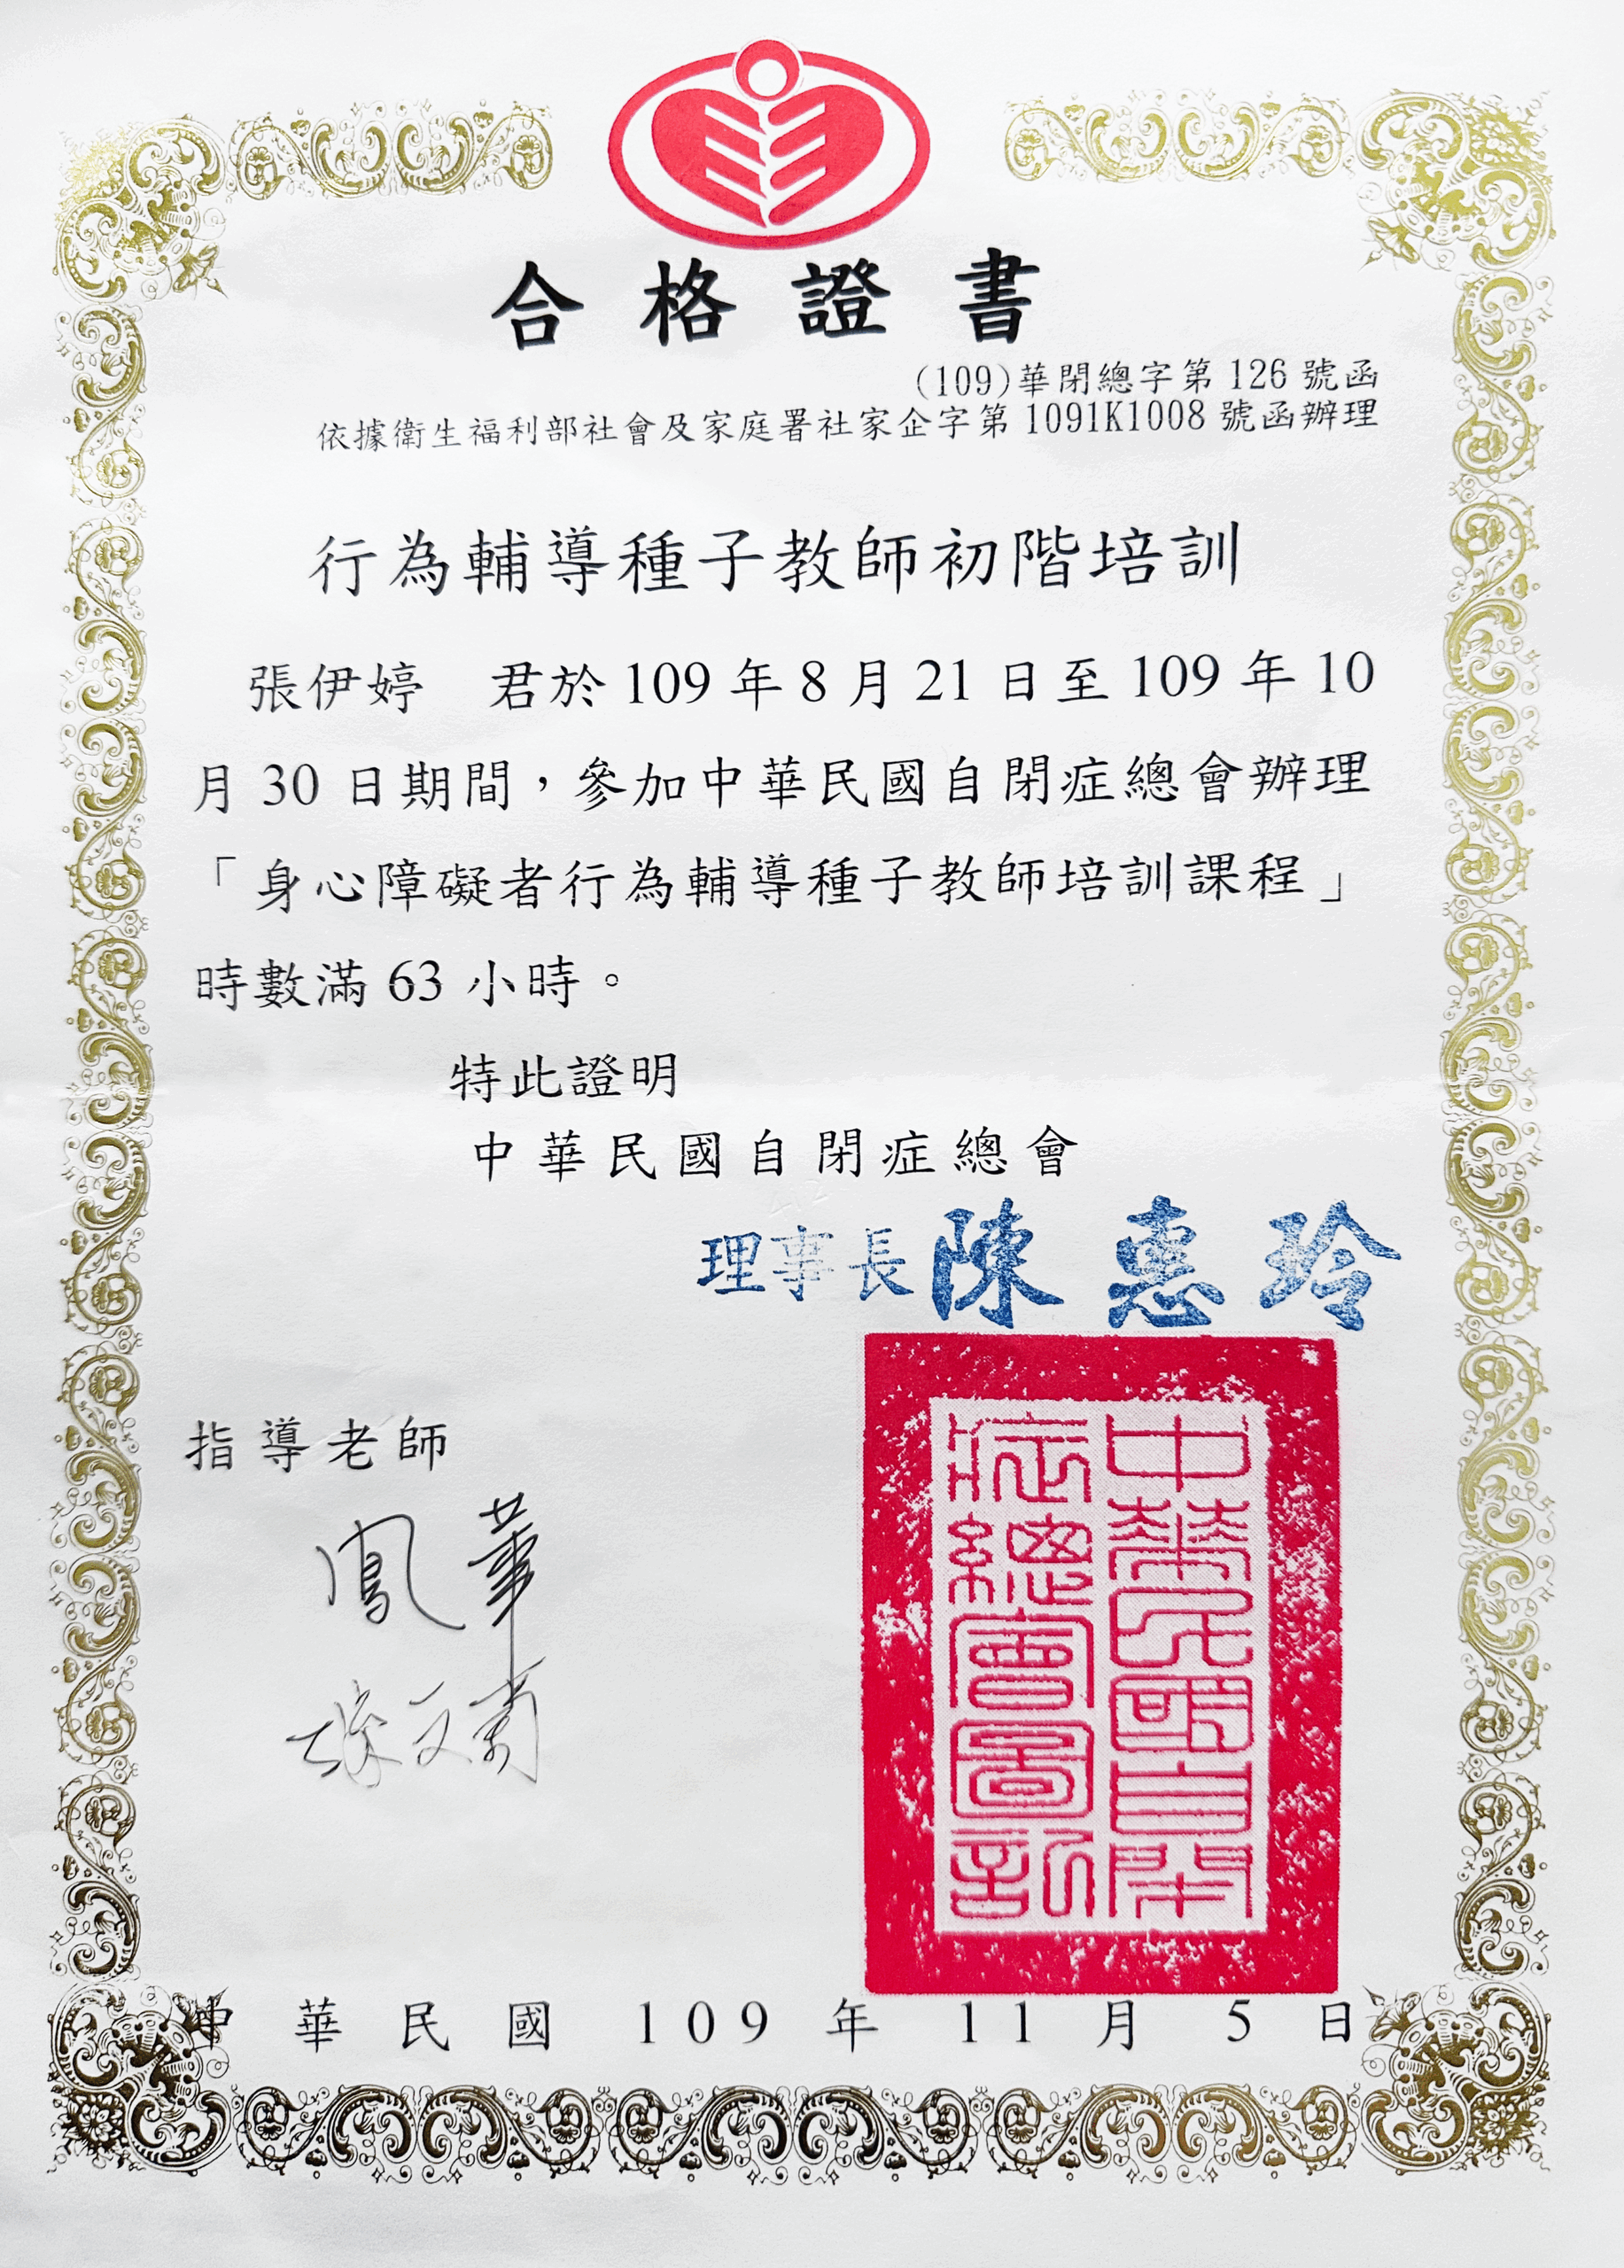 合格證書
(109)華閉總字第 126 號函
依據衛生福利部社會及家庭署社家企字第 1091K1008 號函辦理
行為輔導種子教師初階培訓
張伊婷 君於 109 年 8 月 21 日至 109 年 10
月 30 日期間，參加中華民國自閉症總會辦理
「身心障礙者行為輔導種子教師培訓課程」
時數滿 63 小時。
特此證明
中華民國自閉症總會
理事長 陳惠玲
指導老師
鳳華
中華民國自閉
症總會圖記
中華民國 109 年 11 月 5 日